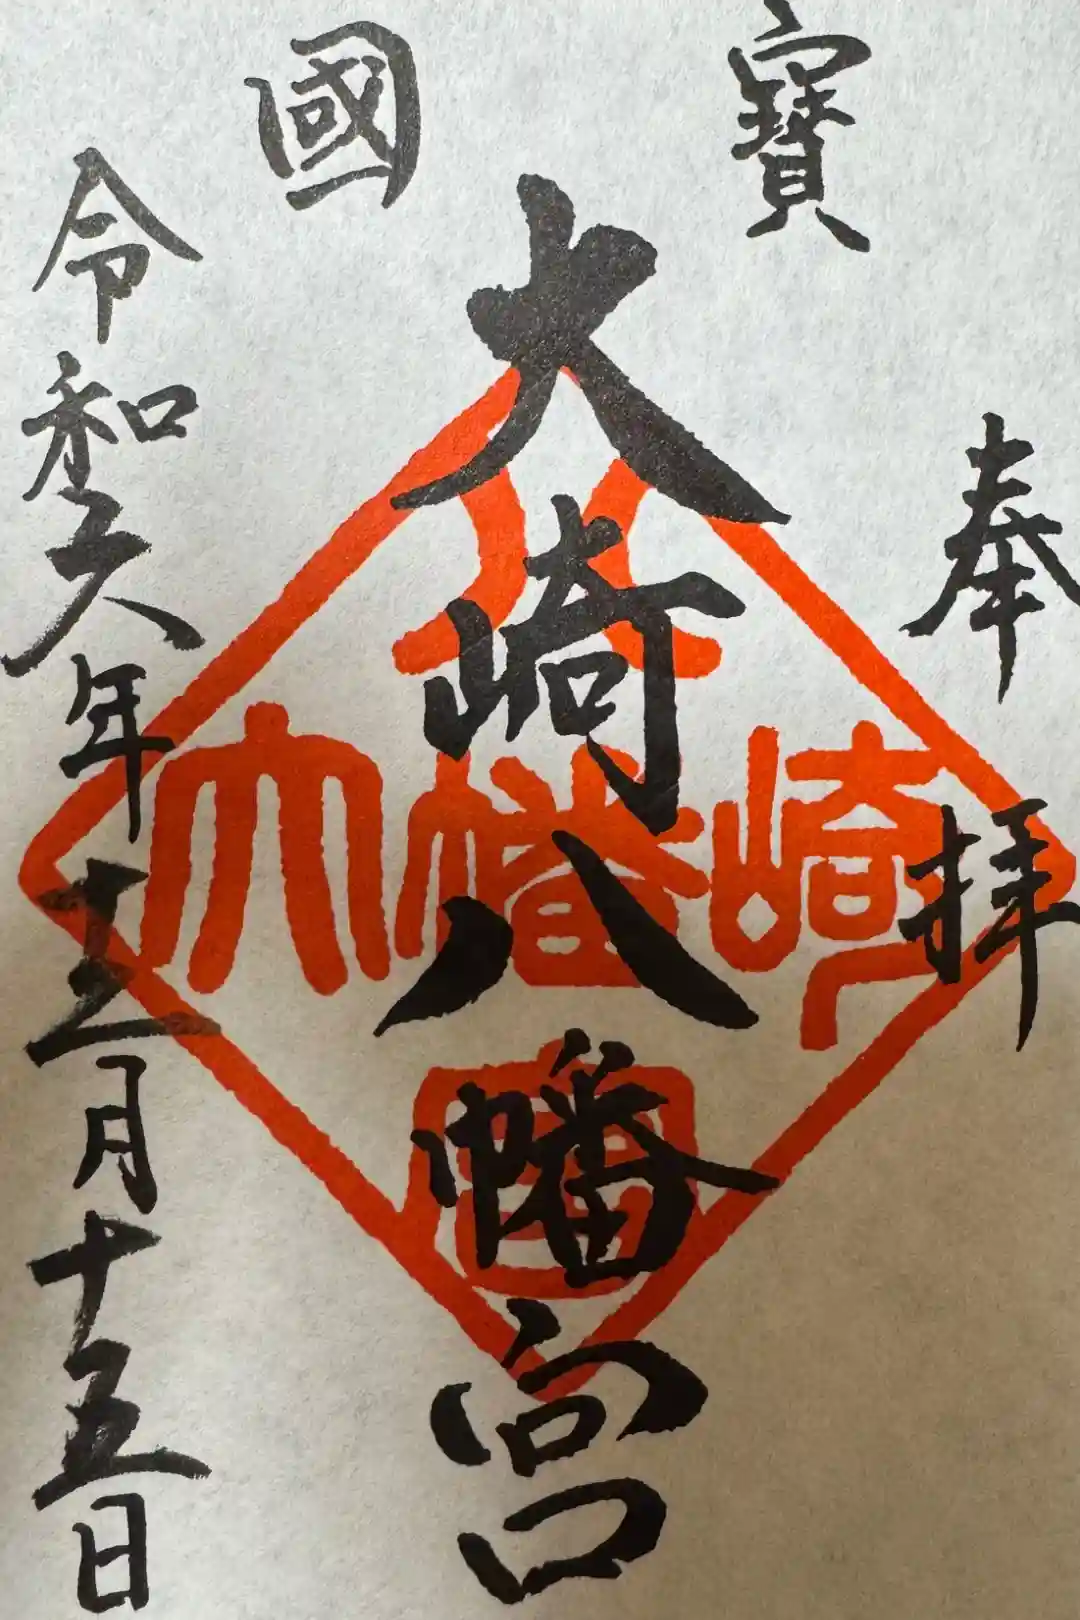 奉拝
國寶
大崎八幡宮
令和六年十二月十五日
大崎八幡宮